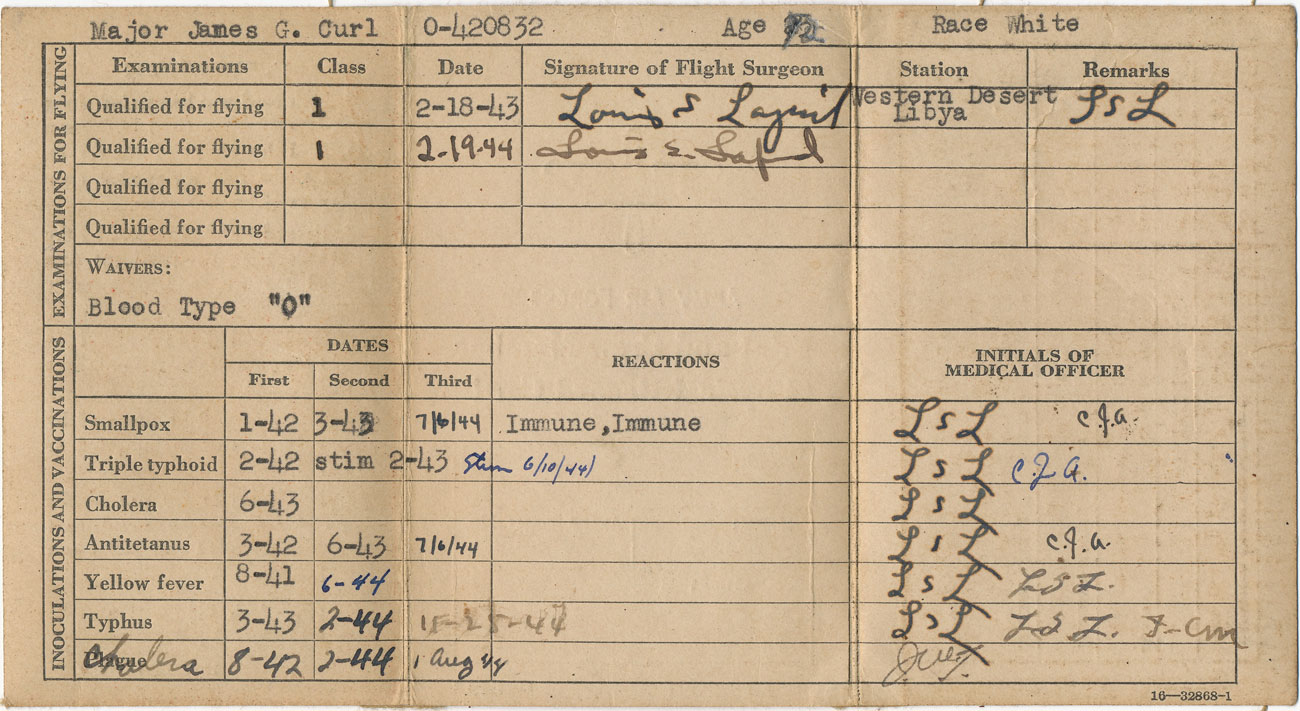 Major James G. Curl O-420832 Age Race White
EXAMINATIONS FOR FLYING
Examinations Class Date Signature of Flight Surgeon Station Remarks
Qualified for flying 1 2-18-43 Louis S Western Desert Libya LSL
Qualified for flying 1 2-19-44 Louis S.
Qualified for flying
Qualified for flying
WAIVERS:
Blood Type "O"
INOCULATIONS AND VACCINATIONS
DATES REACTIONS INITIALS OF MEDICAL OFFICER
First Second Third
Smallpox 1-42 3-43 7/6/44 Immune,Immune LSL C.J.A.
Triple typhoid 2-42 stim 2-43 Stim 6/10/44 LSL C.J.A.
Cholera 6-43 LSL
Antitetanus 3-42 6-43 7/6/44 LSL C.J.A.
Yellow fever 8-41 6-44 LSL LSL.
Typhus 3-43 2-44 LSL LSL.
Plague Cholera 8-42 2-44 1 Aug 44
16—32868-1